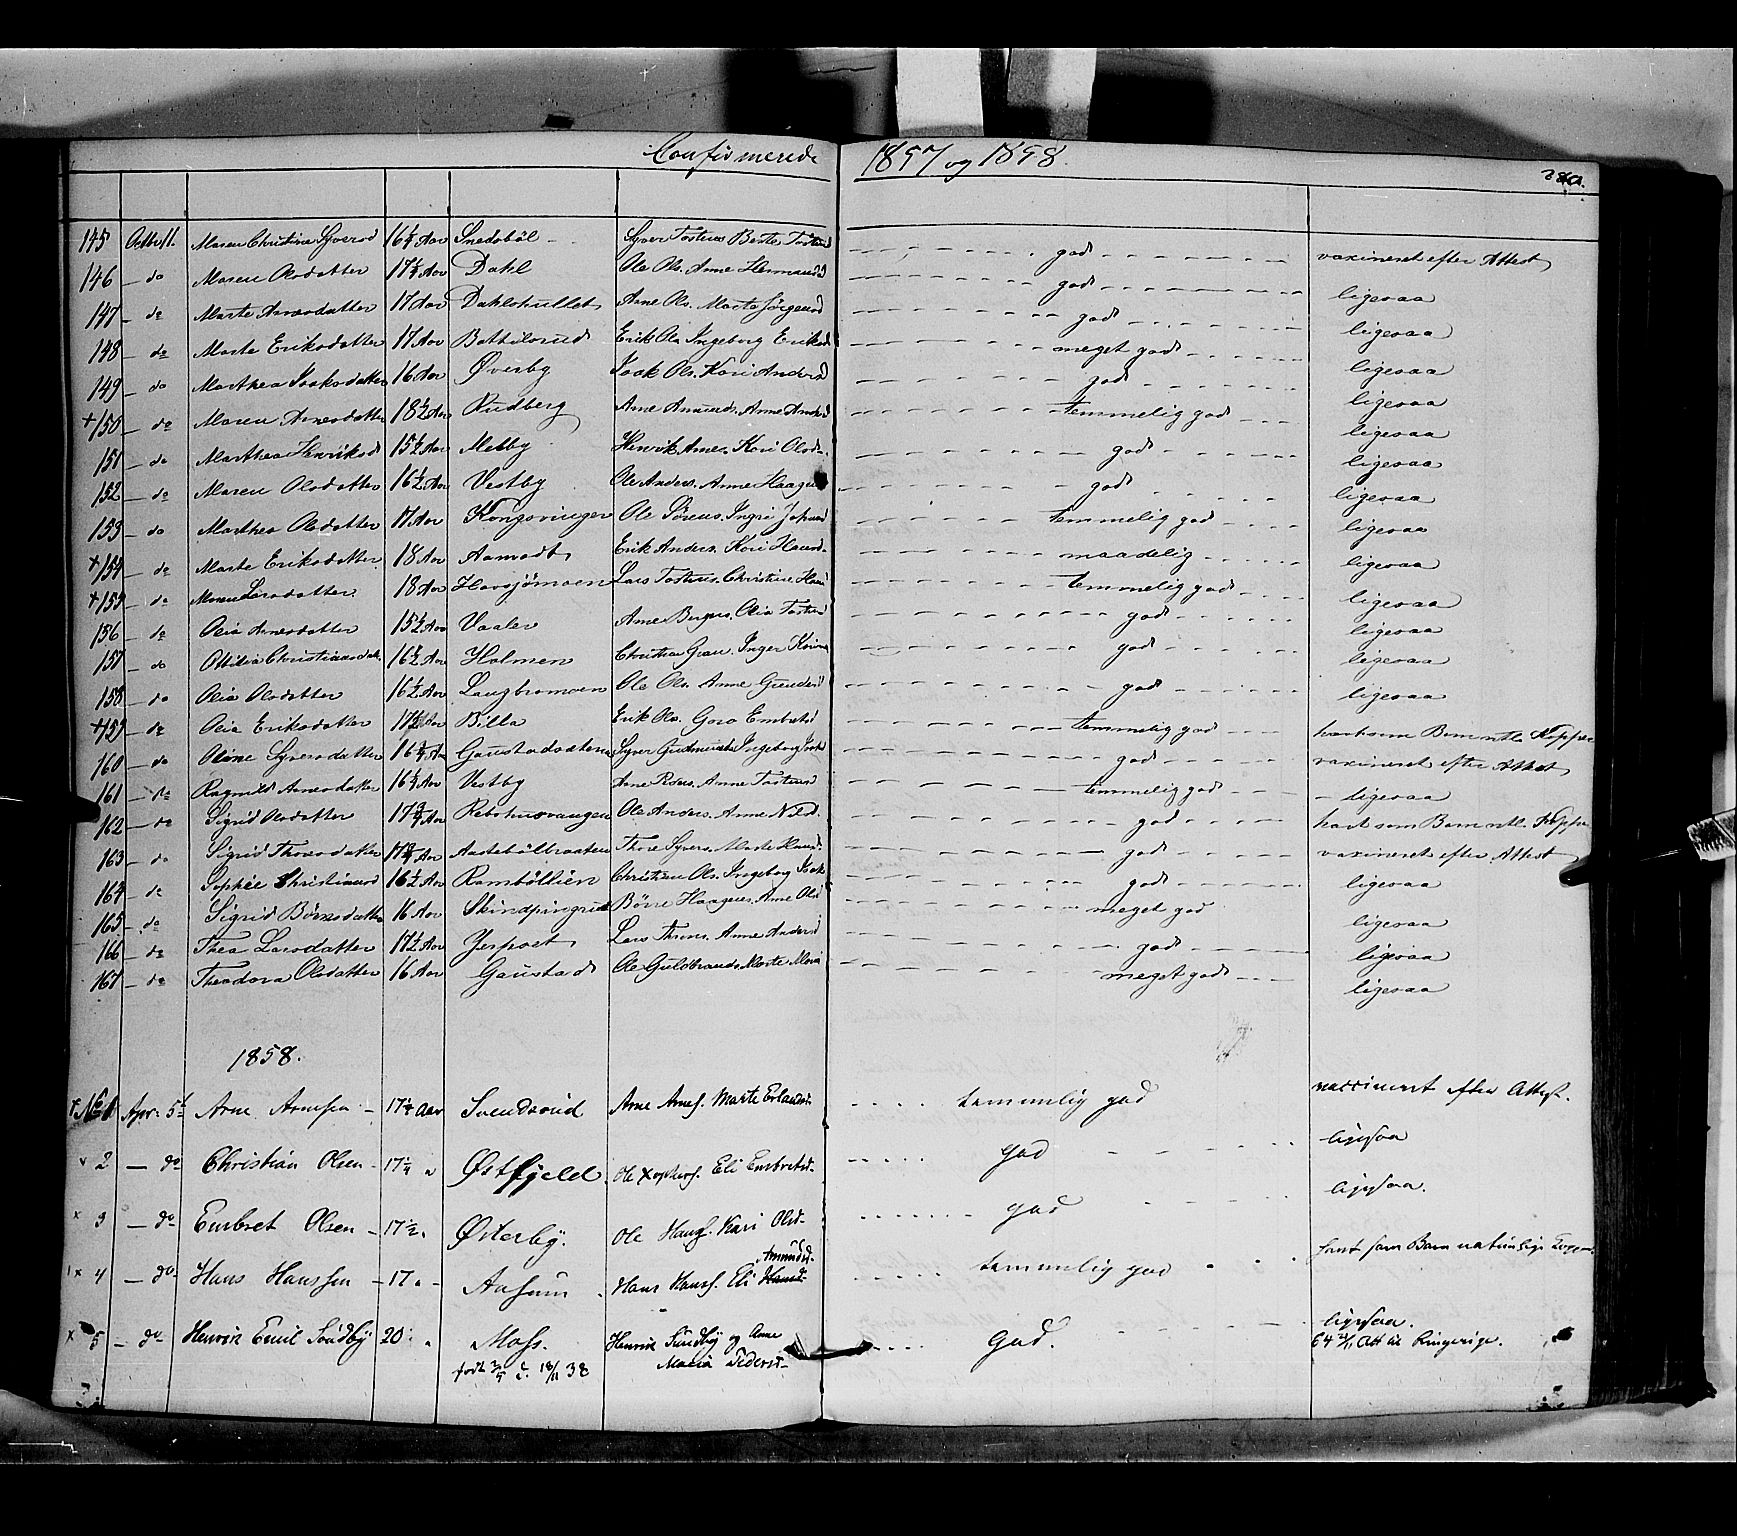 Confirmerede 1857 og 1858.
280.
145 Octbr 11. Maren Christine Syversd 16¼ Aar Snedsböl Syver Tostens. Berte Tostensd god vaxineret efter Attest
146 do Maren Olsdatter 17¼ Aar Dahl Ole Ols. Anne Hermansd god ligesaa
147 do Marte Arnesdatter 17 Aar Dahlshullet Arne Ols. Marte Jörgensd god ligesaa
148 do Marte Eriksdatter 17 Aar Battilsrud Erik Ols Ingeborg Eriksd meget god ligesaa
149 do Marthea Isaksdatter 16 Aar Øverby Isak Ols. Kari Andersd god ligesaa
+150 do Maren Arnesdatter 18½ Aar Rudberg Arne Amunds. Anne Andersd temmelig god ligesaa
151 do Marthea Henriksd 15½ Aar Melby Henrik Arnes. Kari Olsd. god ligesaa
152 do Maren Olsdatter 16½ Aar Vestby Ole Anders. Anne Haagensd god ligesaa
153 do Marthea Olsdatter 17 Aar Kongsvinger Ole Sörens. Ingri Johansd temmelig god ligesaa
+154 do Marte Eriksdatter 18 Aar Aamodt Erik Anders. Kari Hansd. maadelig ligesaa
+155 do Maren Larsdatter 18 Aar Harsjömoen Lars Tostens. Christine Hansd temmelig god ligesaa
156 do Olia Arnesdatter 15½ Aar Vaaler Arne Bergers. Olia Tostensd god ligesaa
157 do Ottilia Christiansdatt. 16½ Aar Holmen Christian Grau. Inger god ligesaa
158 do Olia Olsdatter 16½ Aar Langbromoen Ole Ols. Anne Gundersd god ligesaa
+159 do Olia Eriksdatter 17½ Aar Billa Erik Ols. Goro Embretsd temmelig god havt som Barn ntl. Kopper
160 do Oline Syversdatter 16¼ Aar Gaustadsætern Syver Gudmunds Ingeborg Isaksd god vaxineret efter Attest
161 do Ragnild Arnesdatter 16¼ Aar Vestby Arne Anne Tostensd temmelig god ligesaa
162 do Sigrid Olsdatter 17¾ Aar Rebshusvangen Ole Anders. Anne Nilsd. god havt som Barn ntl. Kopper
163 do Sigrid Thoresdatter 17¾ Aar Aastebölbraaten Thore Syvers. Marte Hansd. god vaxineret efter Attest
164 do Sophie Christiansd 16½ Aar Ramböllien Christian Ols. Ingeborg Isaksd god ligesaa
165 do Sigrid Börresdatter 16 Aar Skindpingrud Börre Haagens. Anne Olsd meget god ligesaa
166 do Thea Larsdatter 17½ Aar Jerpset Lars Thores. Anne Andersd god ligesaa
167 do Theodora Olsdatter 16 Aar Gaustad Ole Guldbrands Marte Maria meget god ligesaa
1858.
+ No 1 Apr. 5te Arne Arnesen 17¼ Aar Svendsrud Arne Arnes. Marte Erlandsd. temmelig god vaccineret efter Attest.
x 2 do Christian Olsen 17¼ " Østfjeld. Ole Eli Embretsd. god ligesaa
x 3 do Embret Olsen 17½ " Østerby. Ole Hans. Kari Olsd. god ligesaa.
x 4 do Hans Hanssen 17 " Aasum Hans Hans. Eli Hansd. Amundsd. temmelig god havt som Barn naturlige Kopper
x 5 do Henrik Emil Sundby 20 " Moss. Henrik Sundby og Anne god. ligesaa.
född 18/11 38 Maria Pedersd. 64 Att til Ringerige.